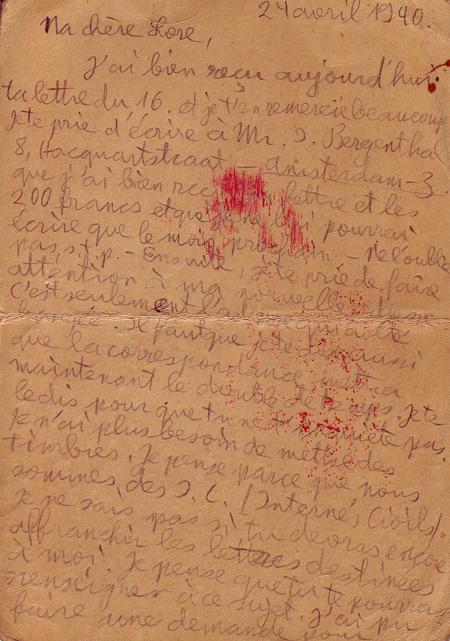 24 avril 1940.
Ma chère Lore,
J'ai bien reçu aujourd'hui
ta lettre du 16. et je t'en remercie beaucoup
Je te prie d'écrire à Mr. J. Bergenthal
8, Jacquartstraat - Amsterdam-Z.
que j'ai bien reçu lettre et les
200 francs et que je ne lui pourrai
écrire que le mois prochain. - Ne l'oublie
pas, s.t.p. - Ensuite, je te prie de faire
attention à ma nouvelle
c'est seulement qui a été
changée. Il faut que je te dise aussi
que la correspondance mettra
maintenant le double de temps. Je te
le dis pour que tu ne t'inquiète pas.
Je n'ai plus besoin de mettre des
timbres. Je pense parce que nous
sommes des I.C. (Internés Civils).
Je ne sais pas si tu devras encore
affranchir les lettres destinées
à moi. Je pense que tu te pourras
renseigner à ce sujet. J'ai pu
faire une demande pour